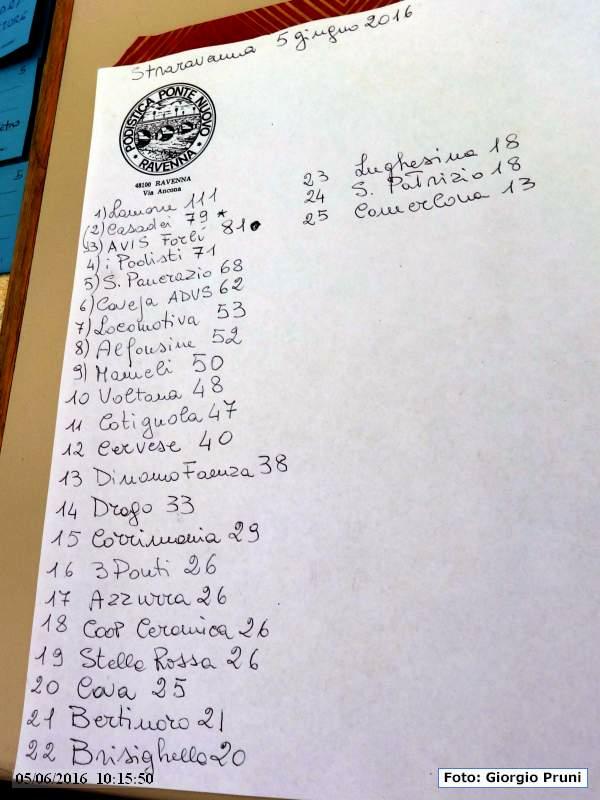 Straravenna 5 giugno 2016
PODISTICA PONTE NUOVO
RAVENNA
48100 RAVENNA
Via Ancona
1) Lamone 111
(2) Casadei 79 *
(3) AVIS Forlì 81 •
4) i Podisti 71
5) S. Pancrazio 68
6) Caveja ADVS 62
7) Locomotiva 53
8) Alfonsine 52
9) Mameli 50
10 Voltana 48
11 Cotignola 47
12 Cervese 40
13 Dinamo Faenza 38
14 Drago 33
15 Corrimania 29
16 3 Ponti 26
17 Azzurra 26
18 Coop Ceramica 26
19 Stella Rossa 26
20 Cava 25
21 Bertinoro 21
22 Brisighella 20
23 Lughesina 18
24 S. Patrizio 18
25 Comerlona 13
05/06/2016 10:15:50
Foto: Giorgio Pruni